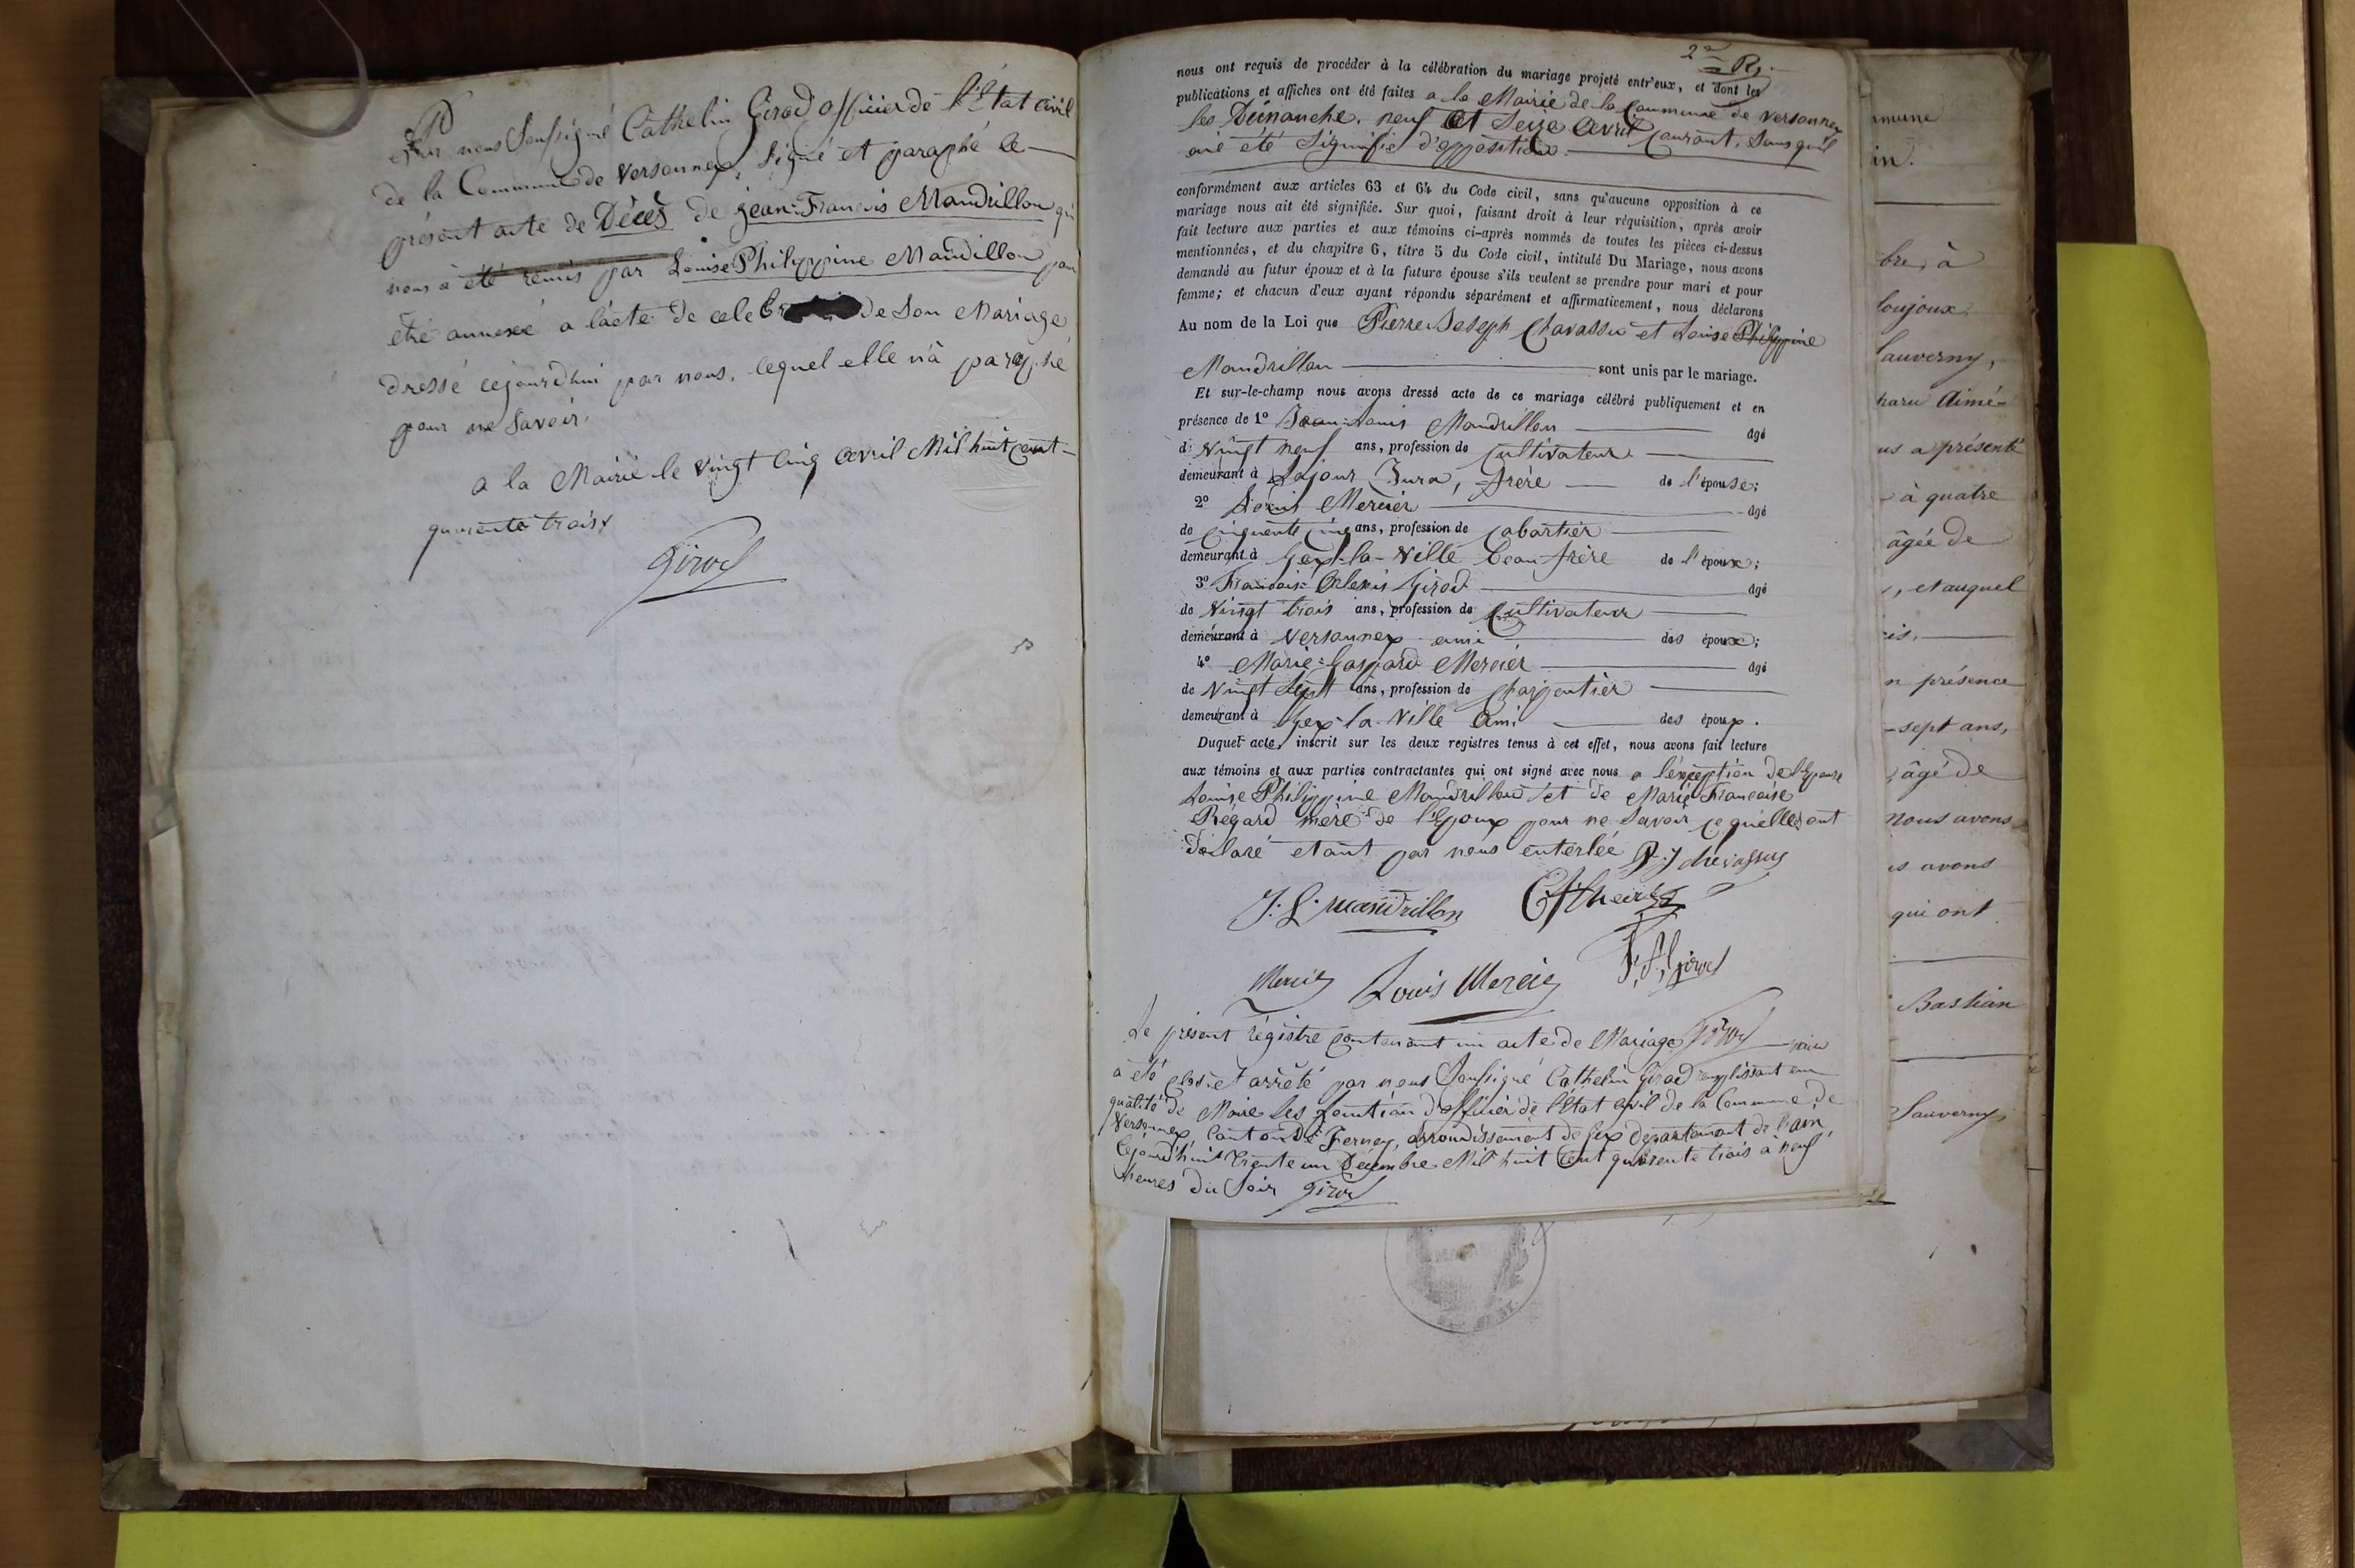 Par nous Soussigné Cathelin Girod officier de l'État civil
de la Commune de Versonnex, signé et paraphé le
présent acte de Décès de jean-Francois Mandrillon qui
nous à été remis par Louise Philippine Mandrillon pour
etre annexé a l'acte de de Son Mariage
dressé cejourdhui par nous, lequel elle n'à paraphé
pour ne Savoir.
a la Mairie le vingt cinq avril Mil huit cent
quarente trois
Girod
2e R.
nous ont requis de procéder à la célébration du mariage projeté entr'eux, et dont les
publications et affiches ont été faites a la Mairie de la Commune de Versonnex
les Dimanche, neuf et Seize avril Courant, Sans quil
aié été Signifié d'opposition.
conformément aux articles 63 et 64 du Code civil, sans qu'aucune opposition à ce
mariage nous ait été signifiée. Sur quoi, faisant droit à leur réquisition, après avoir
fait lecture aux parties et aux témoins ci-après nommés de toutes les pièces ci-dessus
mentionnées, et du chapitre 6, titre 5 du Code civil, intitulé Du Mariage, nous avons
demandé au futur époux et à la future épouse s'ils veulent se prendre pour mari et pour
femme; et chacun d'eux ayant répondu séparément et affirmativement, nous déclarons
Au nom de la Loi que Pierre Joseph Chavassu et Louise Philippine
Mandrillon sont unis par le mariage.
Et sur-le-champ nous avons dressé acte de ce mariage célébré publiquement et en
présence de 1° Jean-Louis Mandrillon âgé
de Vingt neuf ans, profession de Cultivateur
demeurant à Lajour Jura, frère de l'épouse;
2° Louis Mercier âgé
de Cinquente cinq ans, profession de Cabartier
demeurant à Gex-la-Ville beau frère de l'époux;
3° Francois Alexis Girod âgé
de Vingt trois ans, profession de Cultivateur
demeurant à Versonnex ami des époux;
4° Marie-Gaspard Mercier âgé
de Vingt Sept ans, profession de Charpentier
demeurant à Gex-la-Ville Ami des époux.
Duquel acte, inscrit sur les deux registres tenus à cet effet, nous avons fait lecture
aux témoins et aux parties contractantes qui ont signé avec nous a l'éxception de l'Epouse
Louise Philippine Mandrillon et de Marie Francoise
Régard mère de l'Epoux pour ne Savoir ce quelles ont
déclaré etant par nous enterléé P. J chavassus
J. L. mandrillon
F. A. girod
Mercier Louis Mercier
Le présent régistre Contenant un acte de Mariage Girod maire
a été clos et arrêté par nous Soussigné Cathelin Girod remplissant en
qualité de Maire les fonction d'officier de l'État Civil de la Commune de
Versonnex Canton de Ferney, arrondissement de Gex département de l'ain,
Cejourd'hui trente un Décembre Mil huit Cent quarente trois à neuf
heures du Soir Girod
mmune
in.
bre, à
loujoux
Sauverny,
Aimé-
us a présenté
à quatre
âgée de
, et auquel
is.
n présence
-sept ans,
, âgé de
nous avons
s avons
qui ont
Bastian
Sauverny,